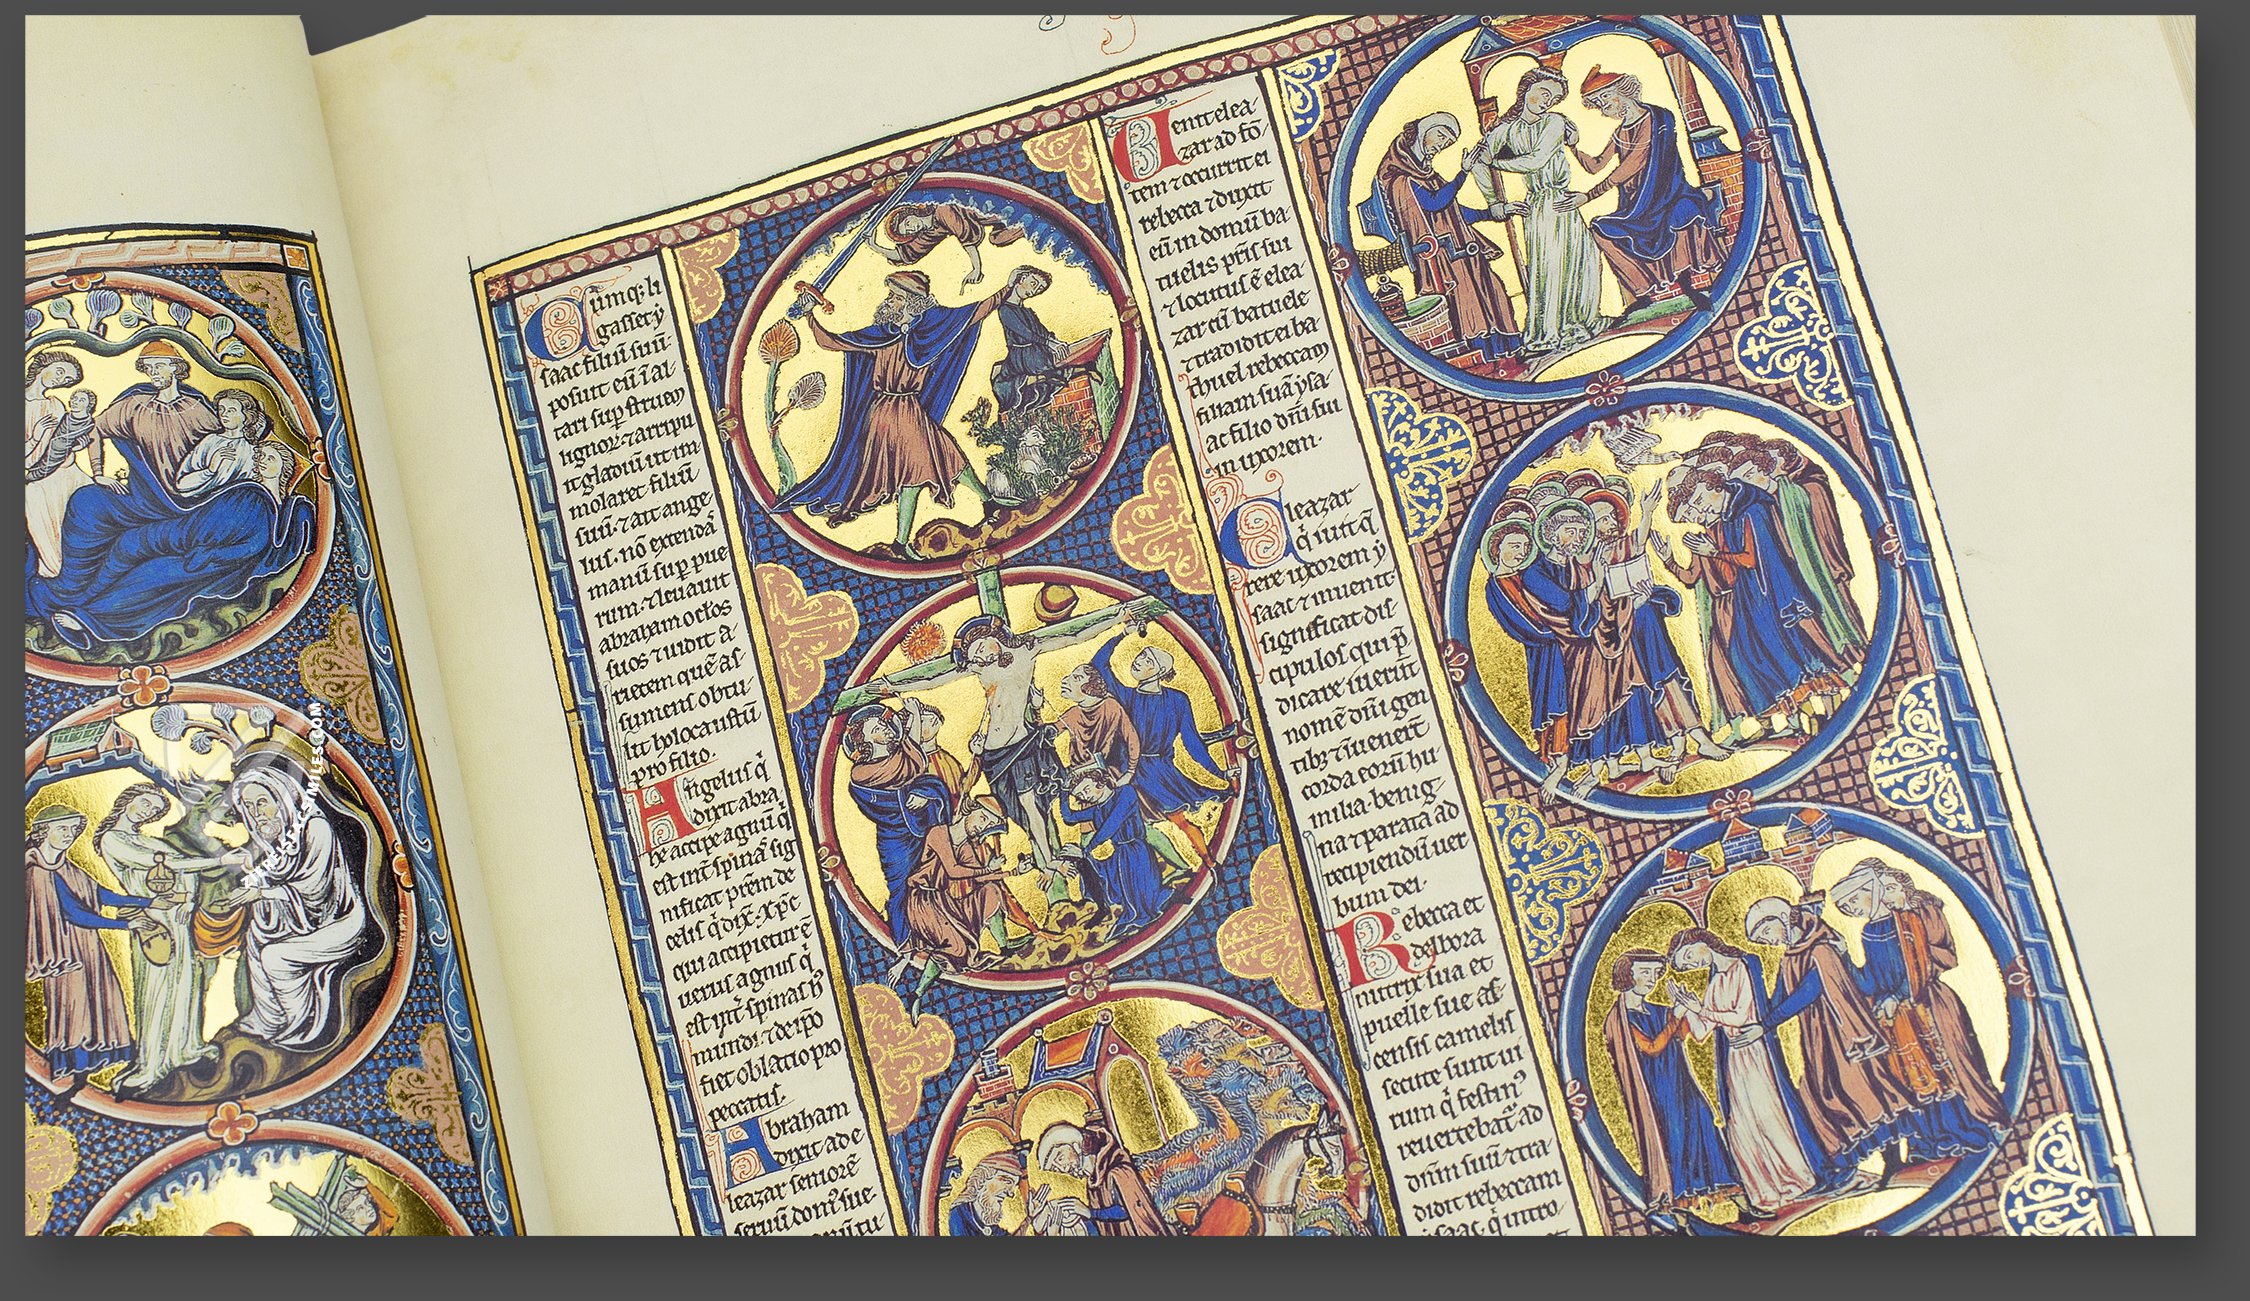 Cumq; li
gasset ẏ
saac filiũ suũ·
posuit eũ ĩ al-
tari sup̱ struem
lignoꝝ ⁊ arripu
it gladiũ ut im-
molaret filiũ
suũ· ⁊ ait ange-
lus· nõ extendã
manũ sup̱ pue
rum· ⁊ leuauit
abraham oclos
suos ⁊ uidit a-
rietem quẽ as-
sumens obtu-
lit holocaustũ
pro filio·
Angelus q̇
dixit abra
he accipe agnũ q̇
est int̃ spinas̃ sig
nificat prẽm de
celis q̇ dix̃· xp̃c
qui accipietur ẽ
uerus agnus q̇
est int̃ spinas h̾
mundi· ⁊ de ip̃o
fiet oblatio pro
peccatis·
Abraham
dixit ad e
leazar seniorẽ
seruũ dom̾ sue·
Uenit elea-
zar ad fõ-
tem ⁊ occurrit ei
rebecca ⁊ duxit
eũ in domũ ba-
tuelis pr̃is sui
⁊ locutus ẽ elea
zar cũ batuele
⁊ tradidit ei ba
thuel rebeccam
filiam suã ẏsa-
ac filio dñi sui
in uxorem·
Eleazar
q̇ iuit q̃
rere uxorem ẏ
saac ⁊ inuenit·
significat dis-
cipulos qui p̃
dicare iuerũt
nomẽ dñi gen
tibꝫ ⁊ ĩuenert̃
corda eorũ hu-
milia· benig-
na ⁊ parata ad
recipiendũ uer
bum dei·
Rebecca et
delbora
nutrix sua et
puelle sue as-
censis camelis
secute sunt ui
rum q̇ festin̾
reuertebat᷑ ad
dñm suũ ⁊ tra
didit rebeccam
ẏsaac· q̇ intro-
ZIEREISFACSIMILES.COM